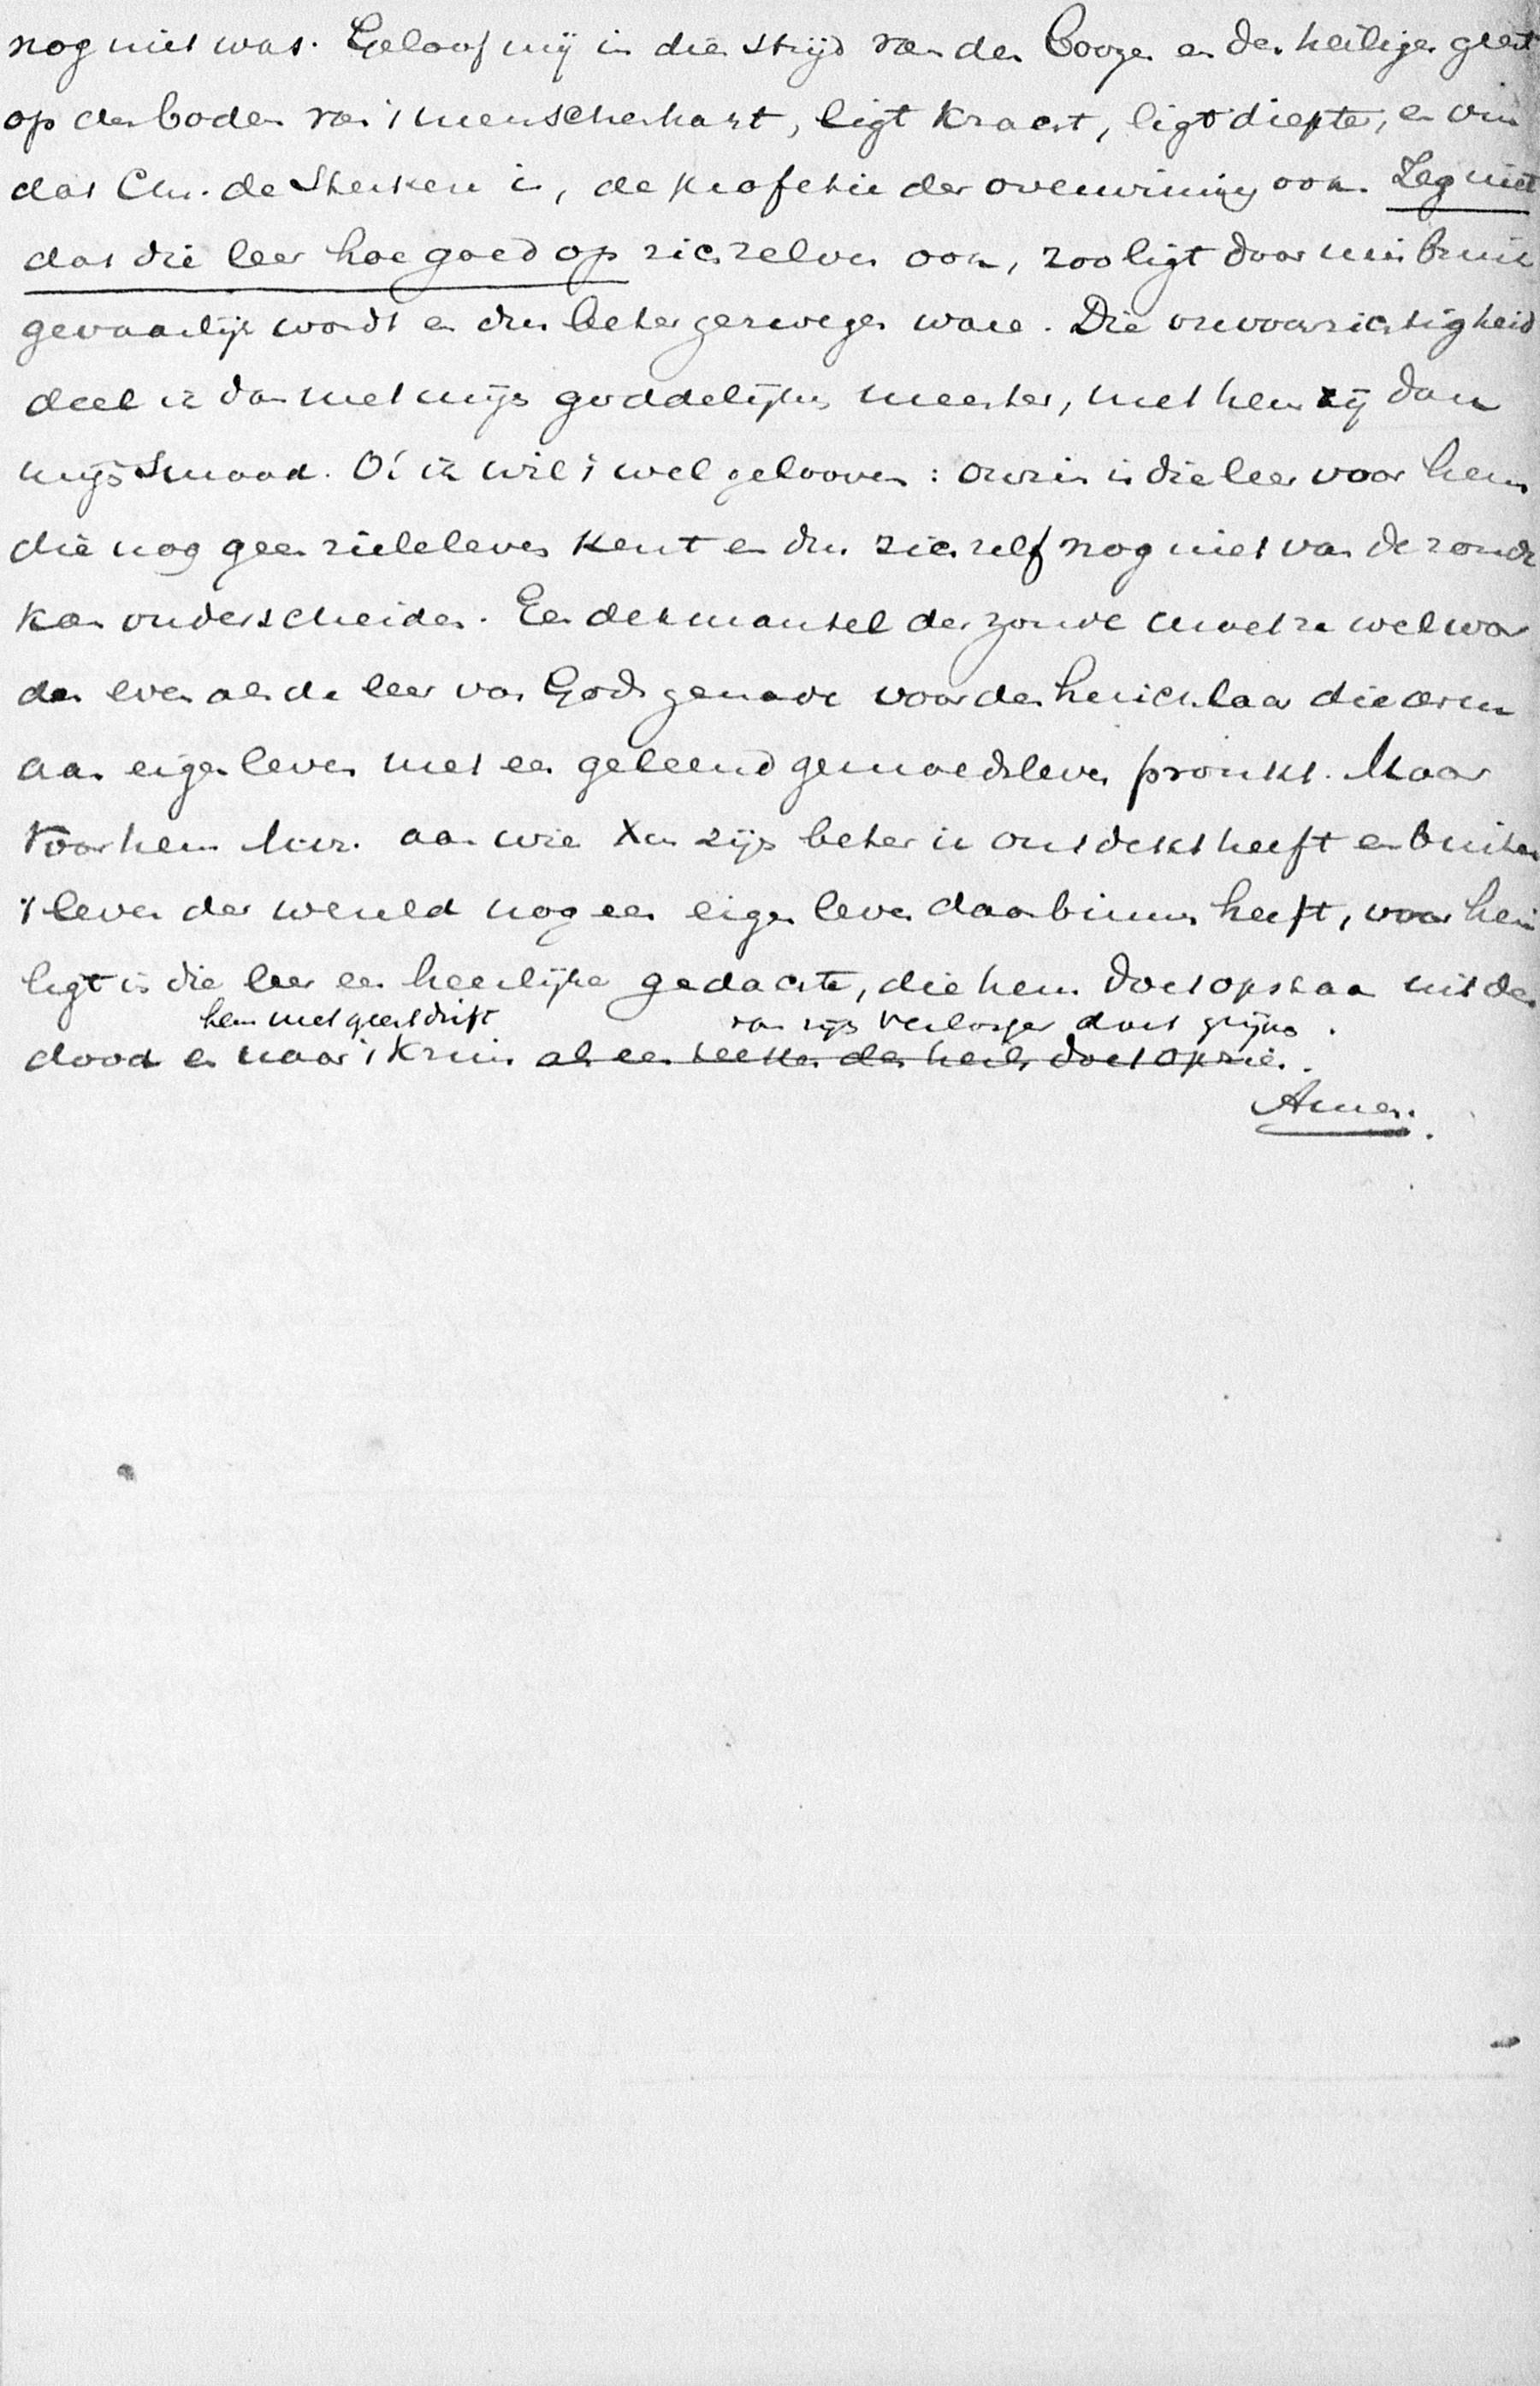 nog niet was. Geloof mij in dien strijd van den Booze en den heiligen geest
op den bodem van 't menschenhart, ligt kracht, ligt diepte, en om
dat Chr. de Sterkere is, de profetie der overwinning ook. Zeg niet
dat die leer hoe goed op zichzelven ook, zoo ligt door misbruik
gevaarlijk wordt en dus beter gezwegen ware. Die onvoorzichtigheid
deel ik dan met mijn goddelijken meester, met hem zij dan
mijn smaad. O! ik wil 't wel gelooven: onzin is die leer voor hem
die nog geen zieleleven kent en dus zich zelf nog niet van de zonde
kan onderscheiden. Een dekmantel der zonde moet ze wel wor
den even als de leer van Gods genade voor den huichelaar die arm
aan eigen leven met een geleend gemoedsleven pronkt. Maar
voor hem M.H. aan wie Xus zijn beter ik ontdekt heeft en buiten
't leven der wereld nog een eigen leven daarbinnen heeft, voor hem
ligt is die leer een heerlijke gedachte, die hem doet opstaan uit den
hem met geestdrift van zijn Verlosser doet grijpen.
dood en naar 't kruis als een teeken des heils doet opzien.
Amen.